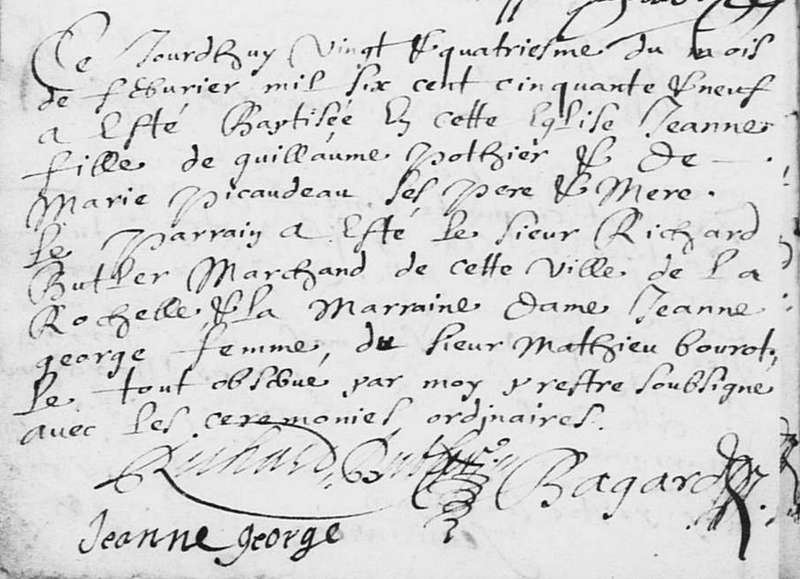 Ce Jourdhuy vingt & quatriesme du mois
de febvrier mil six cent cinquante & neuf
a Esté Baptisée En cette Eglise Jeanne
fille de guillaume pothier & De
Marie picaudeau ses pere & Mere.
Le parrain a Esté le sieur Richard
Butler Marchand de cette ville de La
Rochelle & la Marraine Dame Jeanne
george femme, du sieur Mathieu bourot,
Le tout observé par moy prestre soubsigné
avec les ceremonies ordinaires.
Richard Butler Bagard
Jeanne george